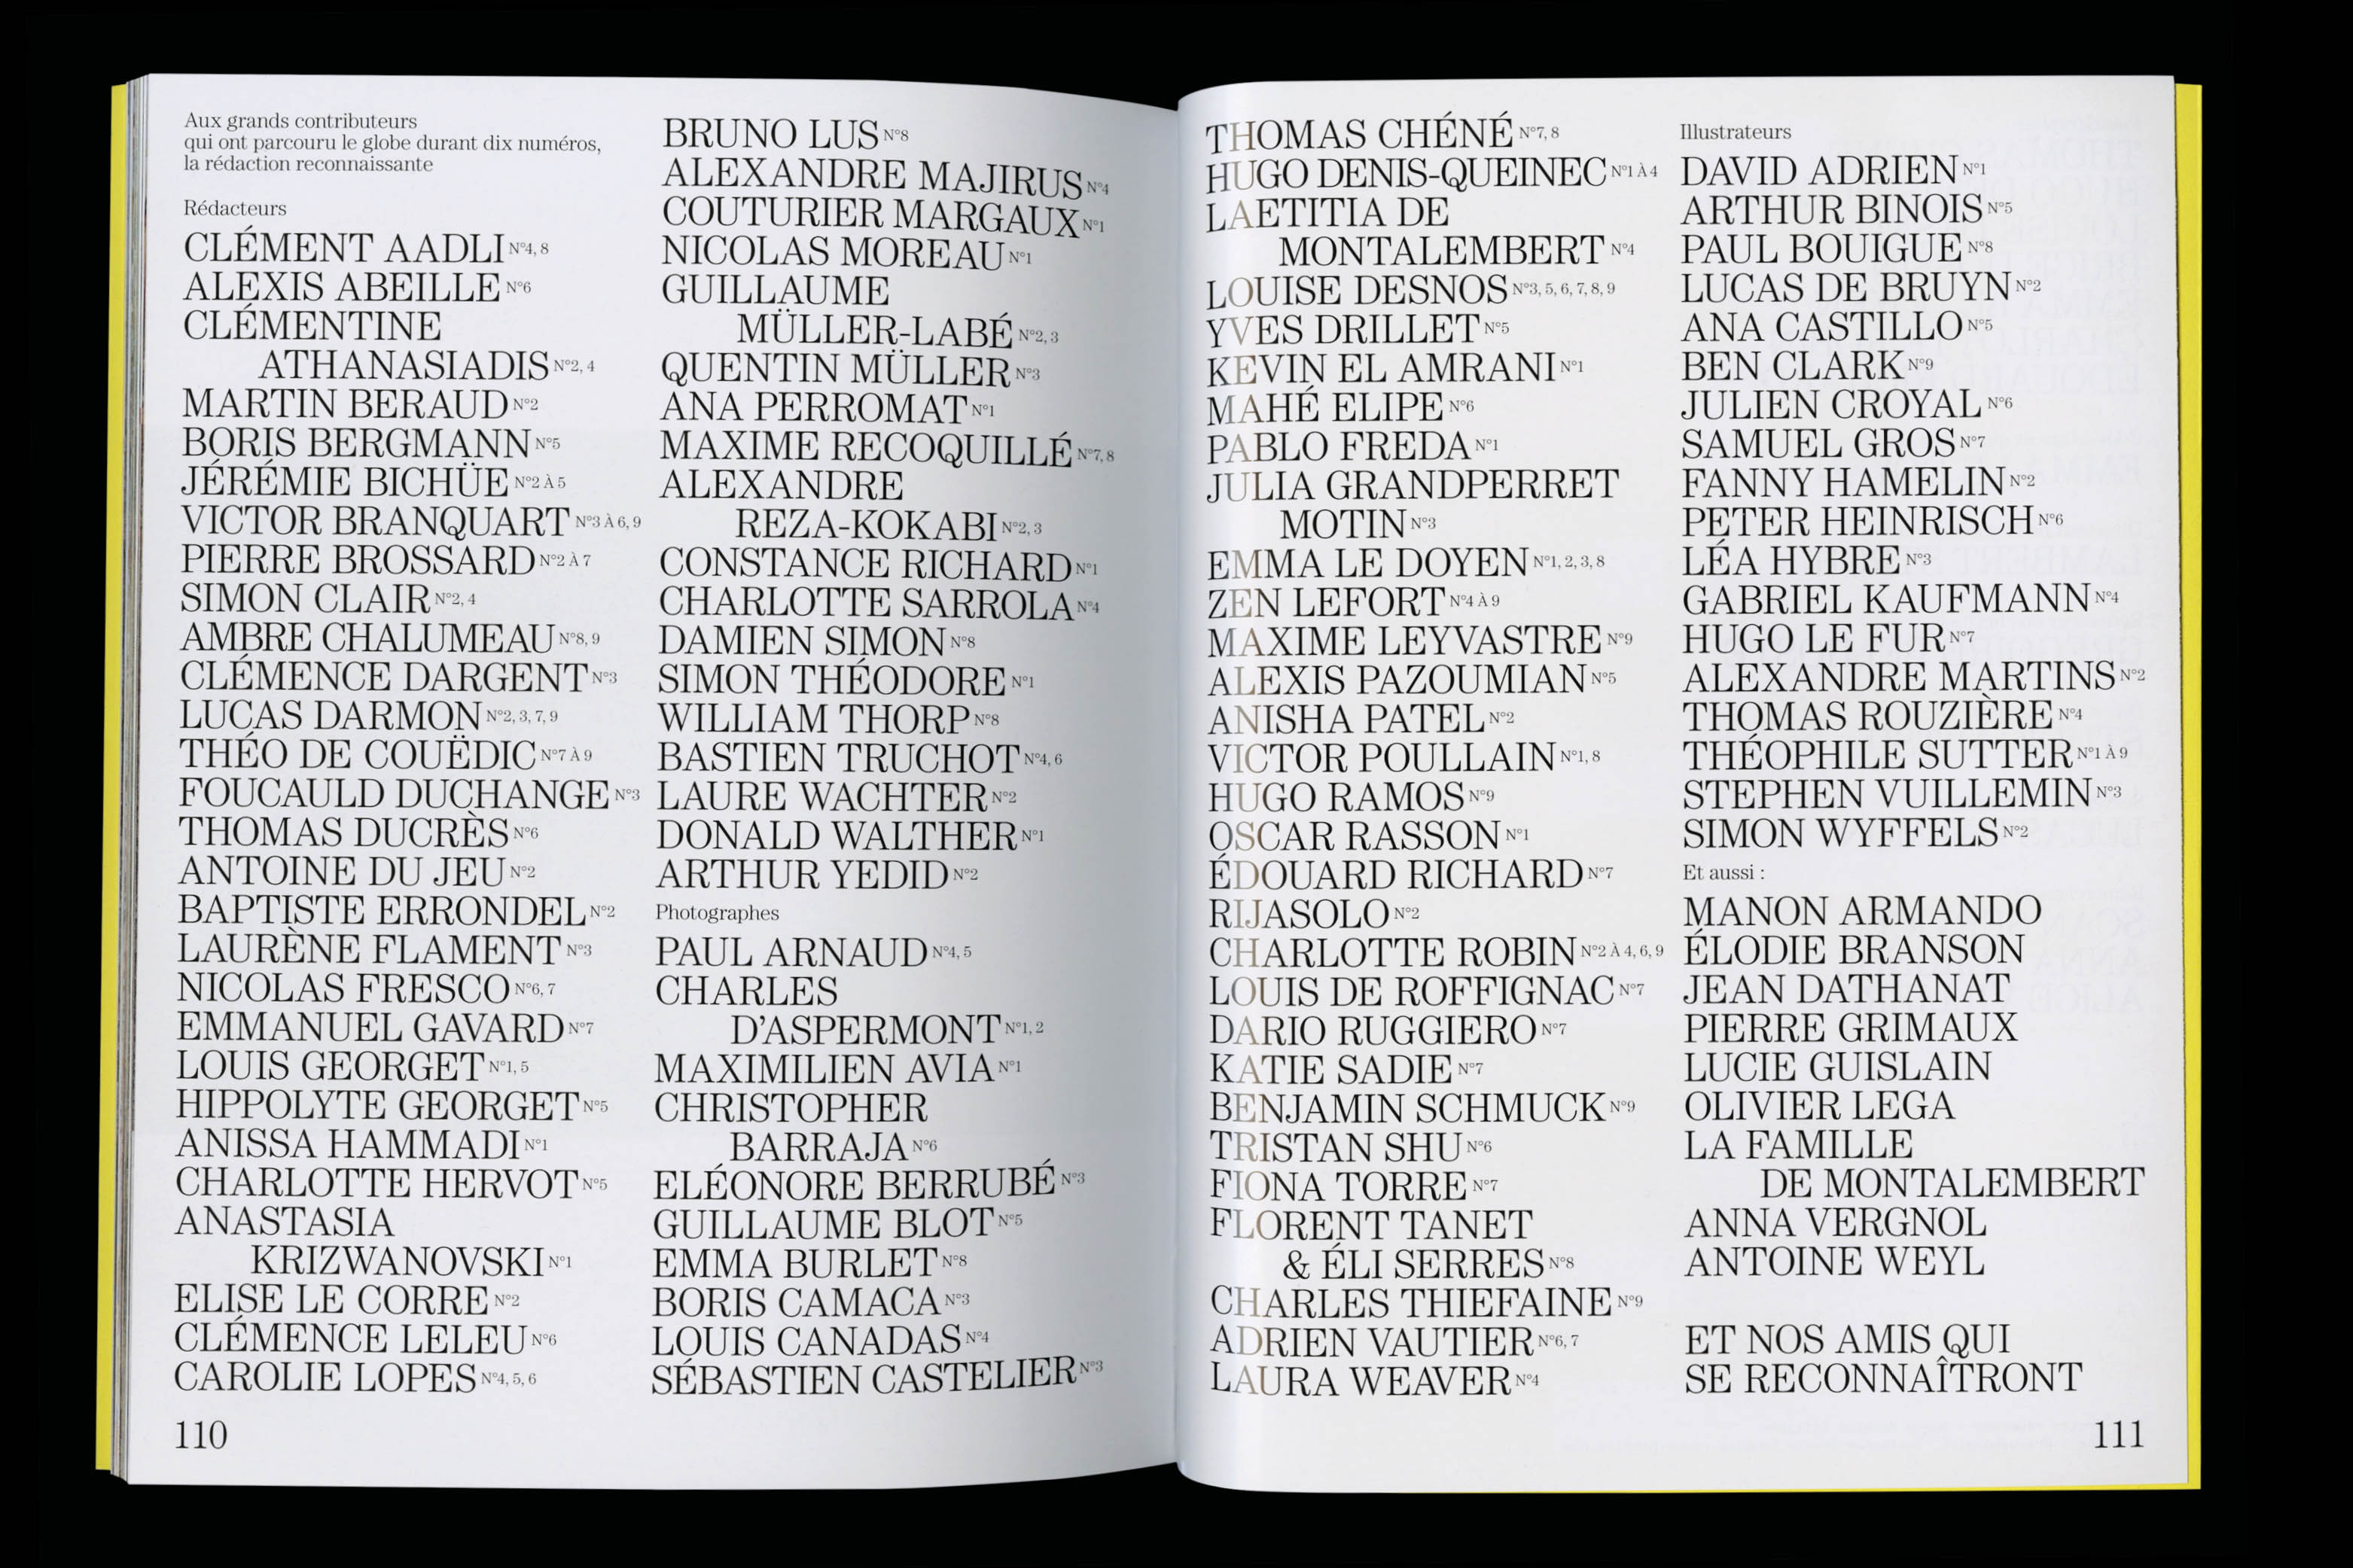 Aux grands contributeurs
qui ont parcouru le globe durant dix numéros,
la rédaction reconnaissante
Rédacteurs
CLÉMENT AADLI N°4, 8
ALEXIS ABEILLE N°6
CLÉMENTINE
ATHANASIADIS N°2, 4
MARTIN BERAUD N°2
BORIS BERGMANN N°5
JÉRÉMIE BICHÜE N°2 À 5
VICTOR BRANQUART N°3 À 6, 9
PIERRE BROSSARD N°2 À 7
SIMON CLAIR N°2, 4
AMBRE CHALUMEAU N°8, 9
CLÉMENCE DARGENT N°3
LUCAS DARMON N°2, 3, 7, 9
THÉO DE COUËDIC N°7 À 9
FOUCAULD DUCHANGE N°3
THOMAS DUCRÈS N°6
ANTOINE DU JEU N°2
BAPTISTE ERRONDEL N°2
LAURÈNE FLAMENT N°3
NICOLAS FRESCO N°6, 7
EMMANUEL GAVARD N°7
LOUIS GEORGET N°1, 5
HIPPOLYTE GEORGET N°5
ANISSA HAMMADI N°1
CHARLOTTE HERVOT N°5
ANASTASIA
KRIZWANOVSKI N°1
ELISE LE CORRE N°2
CLÉMENCE LELEU N°6
CAROLIE LOPES N°4, 5, 6
110
BRUNO LUS N°8
ALEXANDRE MAJIRUS N°4
COUTURIER MARGAUX N°1
NICOLAS MOREAU N°1
GUILLAUME
MÜLLER-LABÉ N°2, 3
QUENTIN MÜLLER N°3
ANA PERROMAT N°1
MAXIME RECOQUILLÉ N°7, 8
ALEXANDRE
REZA-KOKABI N°2, 3
CONSTANCE RICHARD N°1
CHARLOTTE SARROLA N°4
DAMIEN SIMON N°8
SIMON THÉODORE N°1
WILLIAM THORP N°8
BASTIEN TRUCHOT N°4, 6
LAURE WACHTER N°2
DONALD WALTHER N°1
ARTHUR YEDID N°2
Photographes
PAUL ARNAUD N°4, 5
CHARLES
D'ASPERMONT N°1, 2
MAXIMILIEN AVIA N°1
CHRISTOPHER
BARRAJA N°6
ELÉONORE BERRUBÉ N°3
GUILLAUME BLOT N°5
EMMA BURLET N°8
BORIS CAMACA N°3
LOUIS CANADAS N°4
SÉBASTIEN CASTELIER N°3
THOMAS CHÉNÉ N°7, 8
HUGO DENIS-QUEINEC N°1 À 4
LAETITIA DE
MONTALEMBERT N°4
LOUISE DESNOS N°3, 5, 6, 7, 8, 9
YVES DRILLET N°5
KEVIN EL AMRANI N°1
MAHÉ ELIPE N°6
PABLO FREDA N°1
JULIA GRANDPERRET
MOTIN N°3
EMMA LE DOYEN N°1, 2, 3, 8
ZEN LEFORT N°4 À 9
MAXIME LEYVASTRE N°9
ALEXIS PAZOUMIAN N°5
ANISHA PATEL N°2
VICTOR POULLAIN N°1, 8
HUGO RAMOS N°9
OSCAR RASSON N°1
ÉDOUARD RICHARD N°7
RIJASOLO N°2
CHARLOTTE ROBIN N°2 À 4, 6, 9
LOUIS DE ROFFIGNAC N°7
DARIO RUGGIERO N°7
KATIE SADIE N°7
BENJAMIN SCHMUCK N°9
TRISTAN SHU N°6
FIONA TORRE N°7
FLORENT TANET
& ÉLI SERRES N°8
CHARLES THIEFAINE N°9
ADRIEN VAUTIER N°6, 7
LAURA WEAVER N°4
Illustrateurs
DAVID ADRIEN N°1
ARTHUR BINOIS N°5
PAUL BOUIGUE N°8
LUCAS DE BRUYN N°2
ANA CASTILLO N°5
BEN CLARK N°9
JULIEN CROYAL N°6
SAMUEL GROS N°7
FANNY HAMELIN N°2
PETER HEINRISCH N°6
LÉA HYBRE N°3
GABRIEL KAUFMANN N°4
HUGO LE FUR N°7
ALEXANDRE MARTINS N°2
THOMAS ROUZIÈRE N°4
THÉOPHILE SUTTER N°1 À 9
STEPHEN VUILLEMIN N°3
SIMON WYFFELS N°2
Et aussi :
MANON ARMANDO
ÉLODIE BRANSON
JEAN DATHANAT
PIERRE GRIMAUX
LUCIE GUISLAIN
OLIVIER LEGA
LA FAMILLE
DE MONTALEMBERT
ANNA VERGNOL
ANTOINE WEYL
ET NOS AMIS QUI
SE RECONNAÎTRONT
111